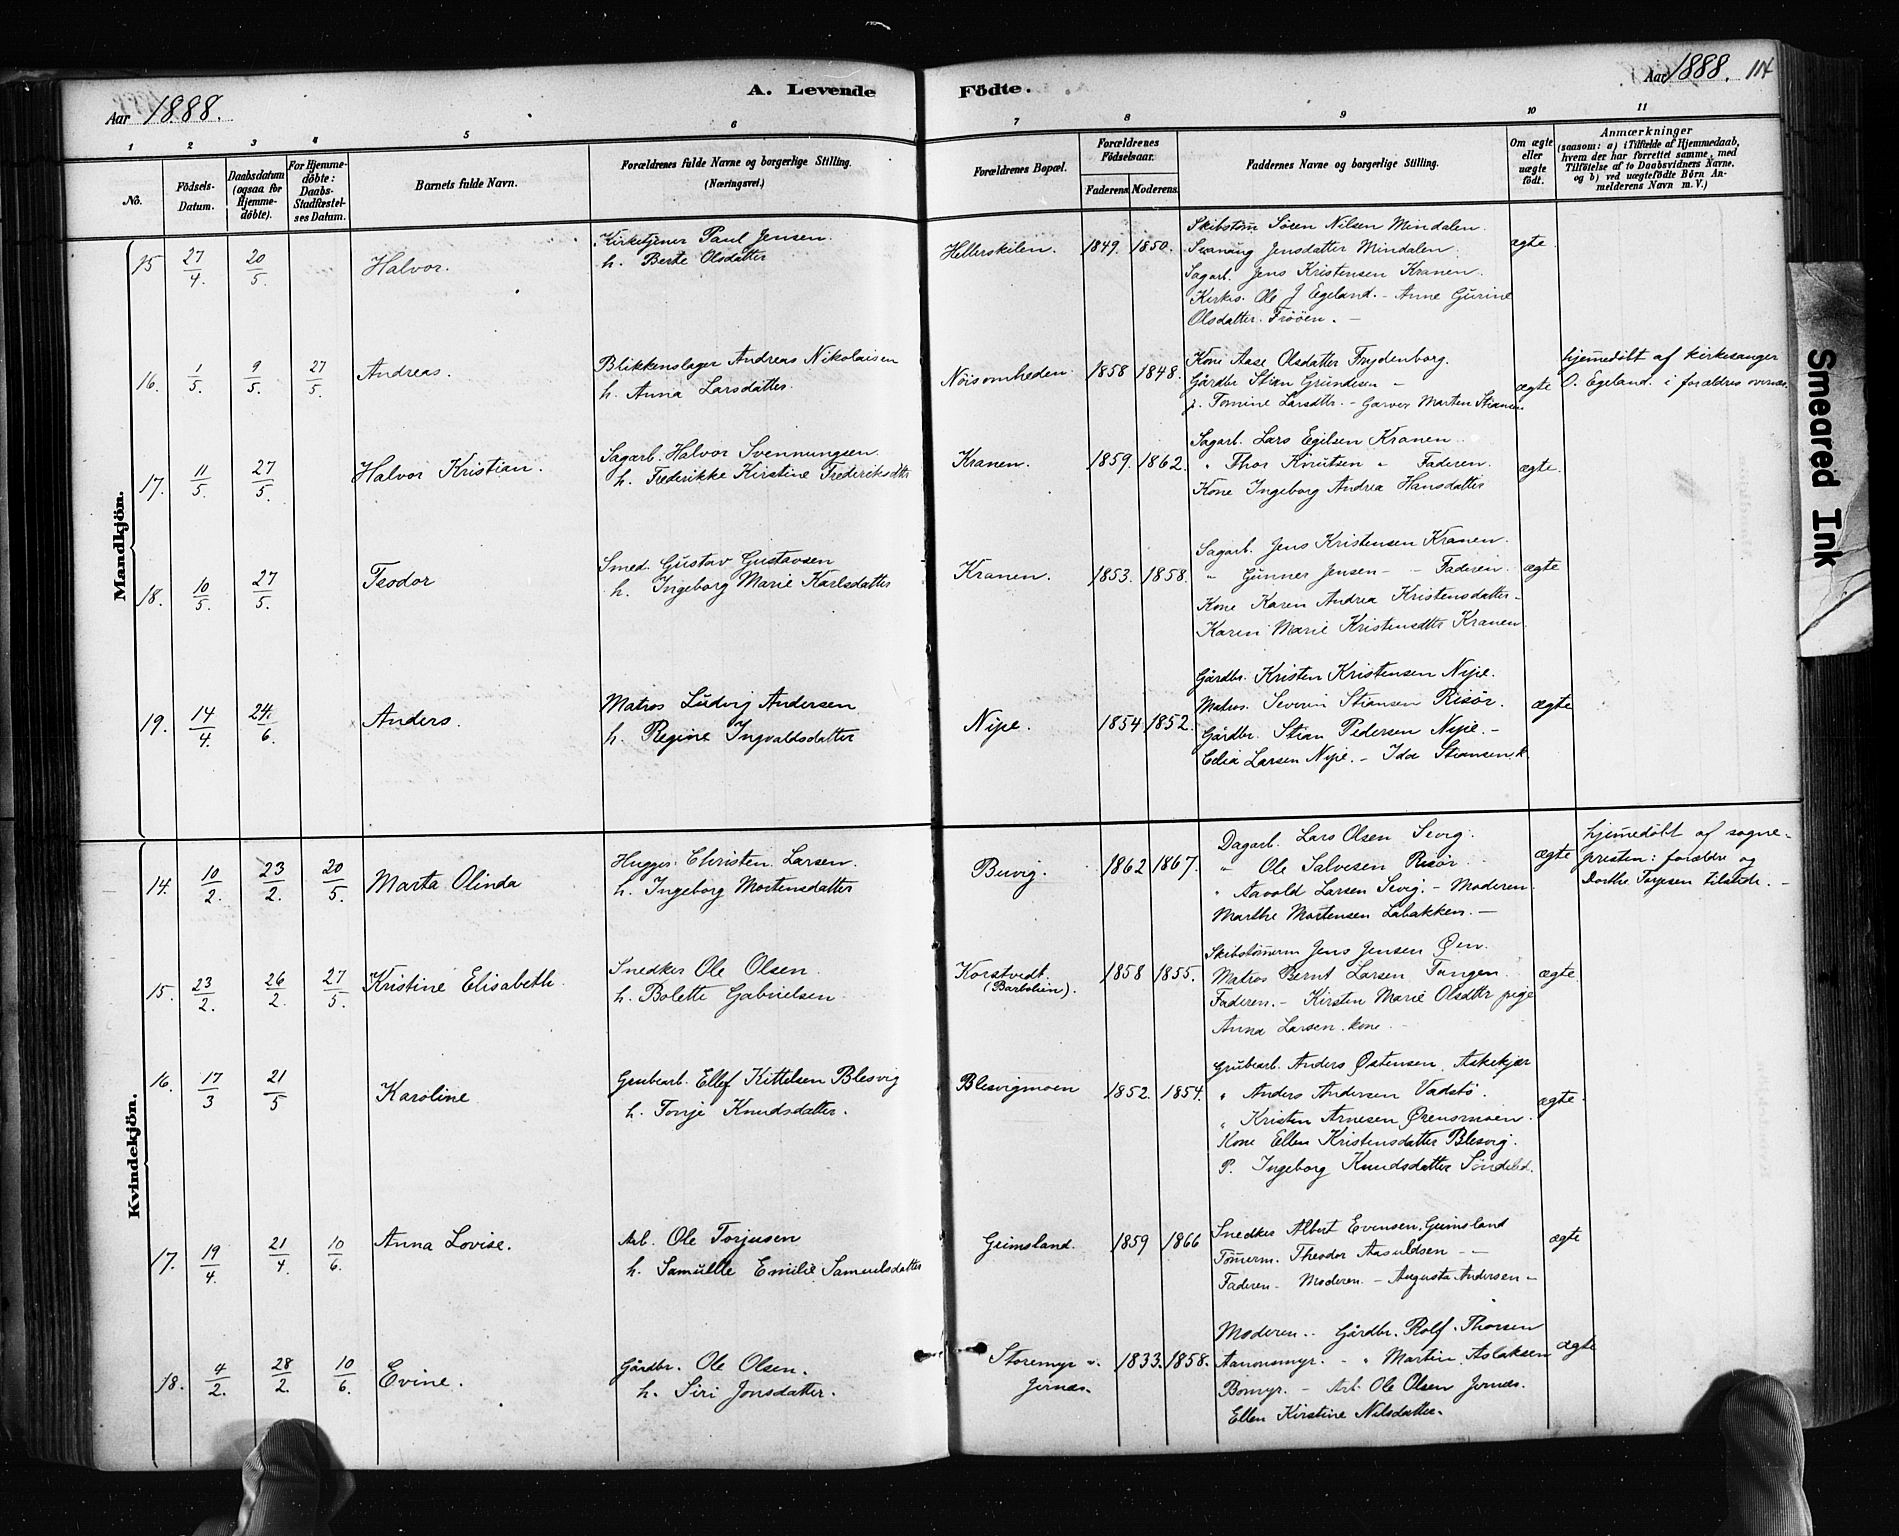 Aar 1888.
A. Levende Födte.
Aar 1888. 114
1 2 3 4 5 6 7 8 9 10 11
No.
Födsels-Datum.
Daabsdatum (ogsaa for Hjemme-döbte).
For Hjemme-döbte: Daabs-Stadfæstel-ses Datum.
Barnets fulde Navn.
Forældrenes fulde Navne og borgerlige Stilling.
(Næringsvei.)
Forældrenes Bopæl.
Forældrenes Födselsaar.
Faderens. Moderens.
Faddernes Navne og borgerlige Stilling.
Om ægte eller uægte födt.
Anmærkninger
(saasom: a) i Tilfælde af Hjemmedaab, hvem der har forrettet samme, med Tilföielse af to Daabsvidners Navne, og b) ved uægtefödte Börn An-melderens Navn m. V.)
Mandkjön.
15 27/4 20/5 Halvor.
Kirketjener Paul Jensen.
h. Berte Olsdatter
Hellerskilen. 1849. 1850.
Skibstøm Søren Nilsen Mindalen.
Svanaug Jensdatter Mindalen.
Sagarb. Jens Kristensen Kranen.
Kirkes. Ole J Egeland. - Anne Gurine
Olsdatter. Frøøen. -
ægte.
16. 1/5 9/5 27/5 Andreas.
Blikkenslager Andreas Nikolaisen
h. Anna Larsdatter.
Nöisomheden. 1858 1848.
Kone Aase Olsdatter Frydenborg.
Gårdbr Stian Gundesen "
p. Tomine Larsdtr. - Garver Marten Stiansen
ægte
hjemmedøbt af kirkesanger
O. Egeland. i forældres overvær.
17. 11/5 27/5 Halvor Kristian.
Sagarb. Halvor Svennungsen.
h. Frederikke Kirstine Frederiksdtr
Kranen. 1859. 1862.
Sagarb. Lars Egilsen Kranen.
" Thor Knutsen " Faderen.
Kone Ingeborg Andrea Hansdatter
ægte
18. 10/5 27/5 Teodor
Smed Gustav Gustavsen
h. Ingeborg Marie Karlsdatter
Kranen. 1853. 1858.
Sagarb. Jens Kristensen Kranen.
" Gunner Jensen - - Faderen.
Kone Karen Andrea Kristensdatter -
Karen Marie Kristensdtr Kranen.
ægte
19. 14/4 24/6 Anders.
Matros Ludvig Andersen
h. Regine Ingvaldsdatter
Nipe. 1854 1852.
Gårdbr. Kristen Kristensen Nipe.
Matros. Severin Stiansen Risør.
Gårdbr. Stian Pedersen Nipe. -
Celia Larsen Nipe. - Ida Stiansen. k.
ægte
Kvindekjön.
14. 10/2 23/2 20/5 Marta Olinda
Hugger. Christen Larsen.
h. Ingeborg Mortensdatter
Buvig. 1862 1867.
Dagarb. Lars Olsen Sevig.
" Ole Salvesen Risør.
" Aavold Larsen Sevig. - Moderen.
Marthe Mortensen Labakken. -
ægte
hjemmedøbt af sogne-
presten: forældre og
Dorthe Terjesen tilstede. -
15. 23/2 26/2 27/5 Kristine Elisabeth.
Snedker Ole Olsen.
h. Bolette Gabrielsen
Korstvedt.
(Barbolien). 1858 1855.
Skibstømerm Jens Jensen Øen.
Matros Bernt Larsen Tangen.
Faderen. - Kirsten Marie Olsdtr pige
Anna Larsen. kone.
ægte
16. 17/3 21/5 Karoline
Grubearb. Ellef Kittelsen Blesvig
h. Tonje Knudsdatter.
Blesvigmoen 1852. 1854.
Grubearb. Anders Østensen Askekjær
" Anders Andersen Vadstø.
" Kristen Arnesen Ørensmoen.
Kone Ellen Kristensdatter Blesvig.
P. Ingeborg Knudsdatter Søndeled.
ægte.
17. 19/4 21/4 10/6 Anna Lovise.
Arb. Ole Torjusen
h. Samuelle Emilie Samuelsdatter
Geimsland. 1859 1866
Snedker Albert Evensen. Geimsland
Tømerm. Theodor Aasuldsen - -
Faderen - Moderen - Augusta Andersen -
ægte
18. 4/2 28/2 10/6 Evine.
Gårdbr. Ole Olsen.
h. Siri Jonsdatter.
Storemyr v.
Jernæs. 1833. 1858.
Moderen.. Gårdbr. Rolf Thorsen
Aanonsmyr. - " Martin Aslaksen
Bomyr. - Arb. Ole Olsen Jernæs.
Ellen Kirstine Nilsdatter.
ægte
Smeared Ink